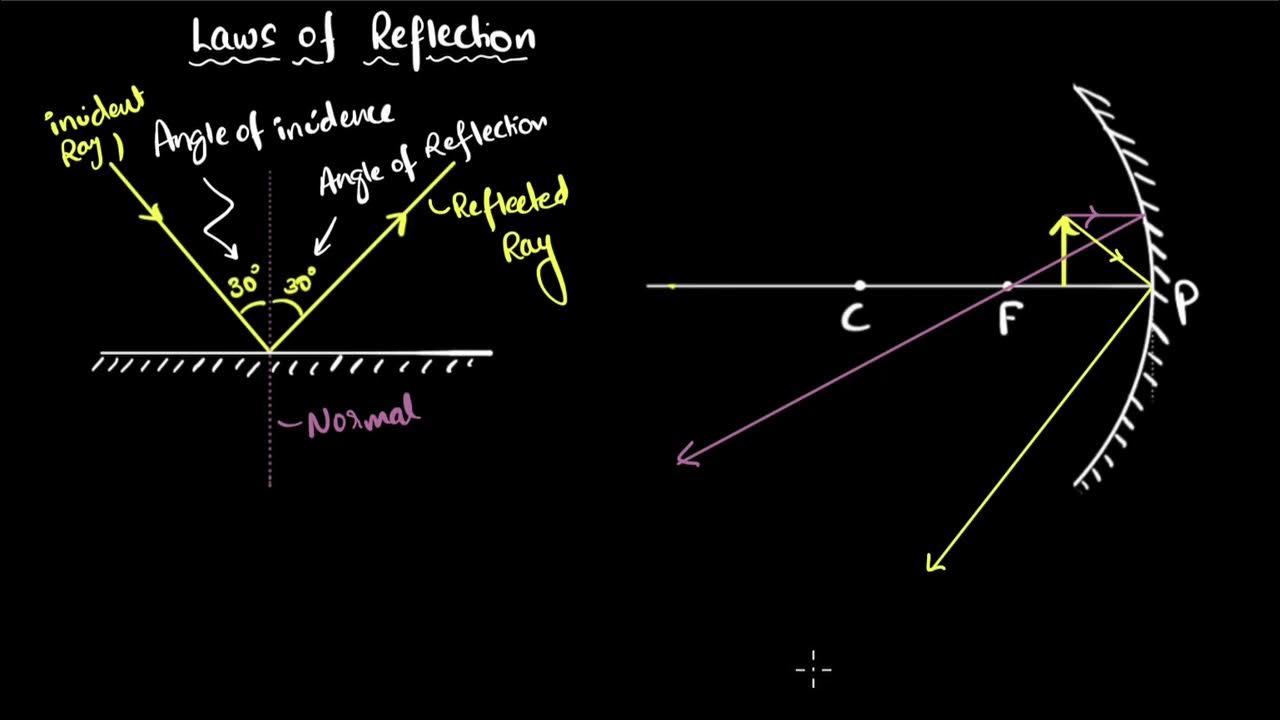 Laws of Reflection
incident
Ray
Angle of incidence
Angle of Reflection
Reflected
Ray
30° 30°
Normal
C
F
P